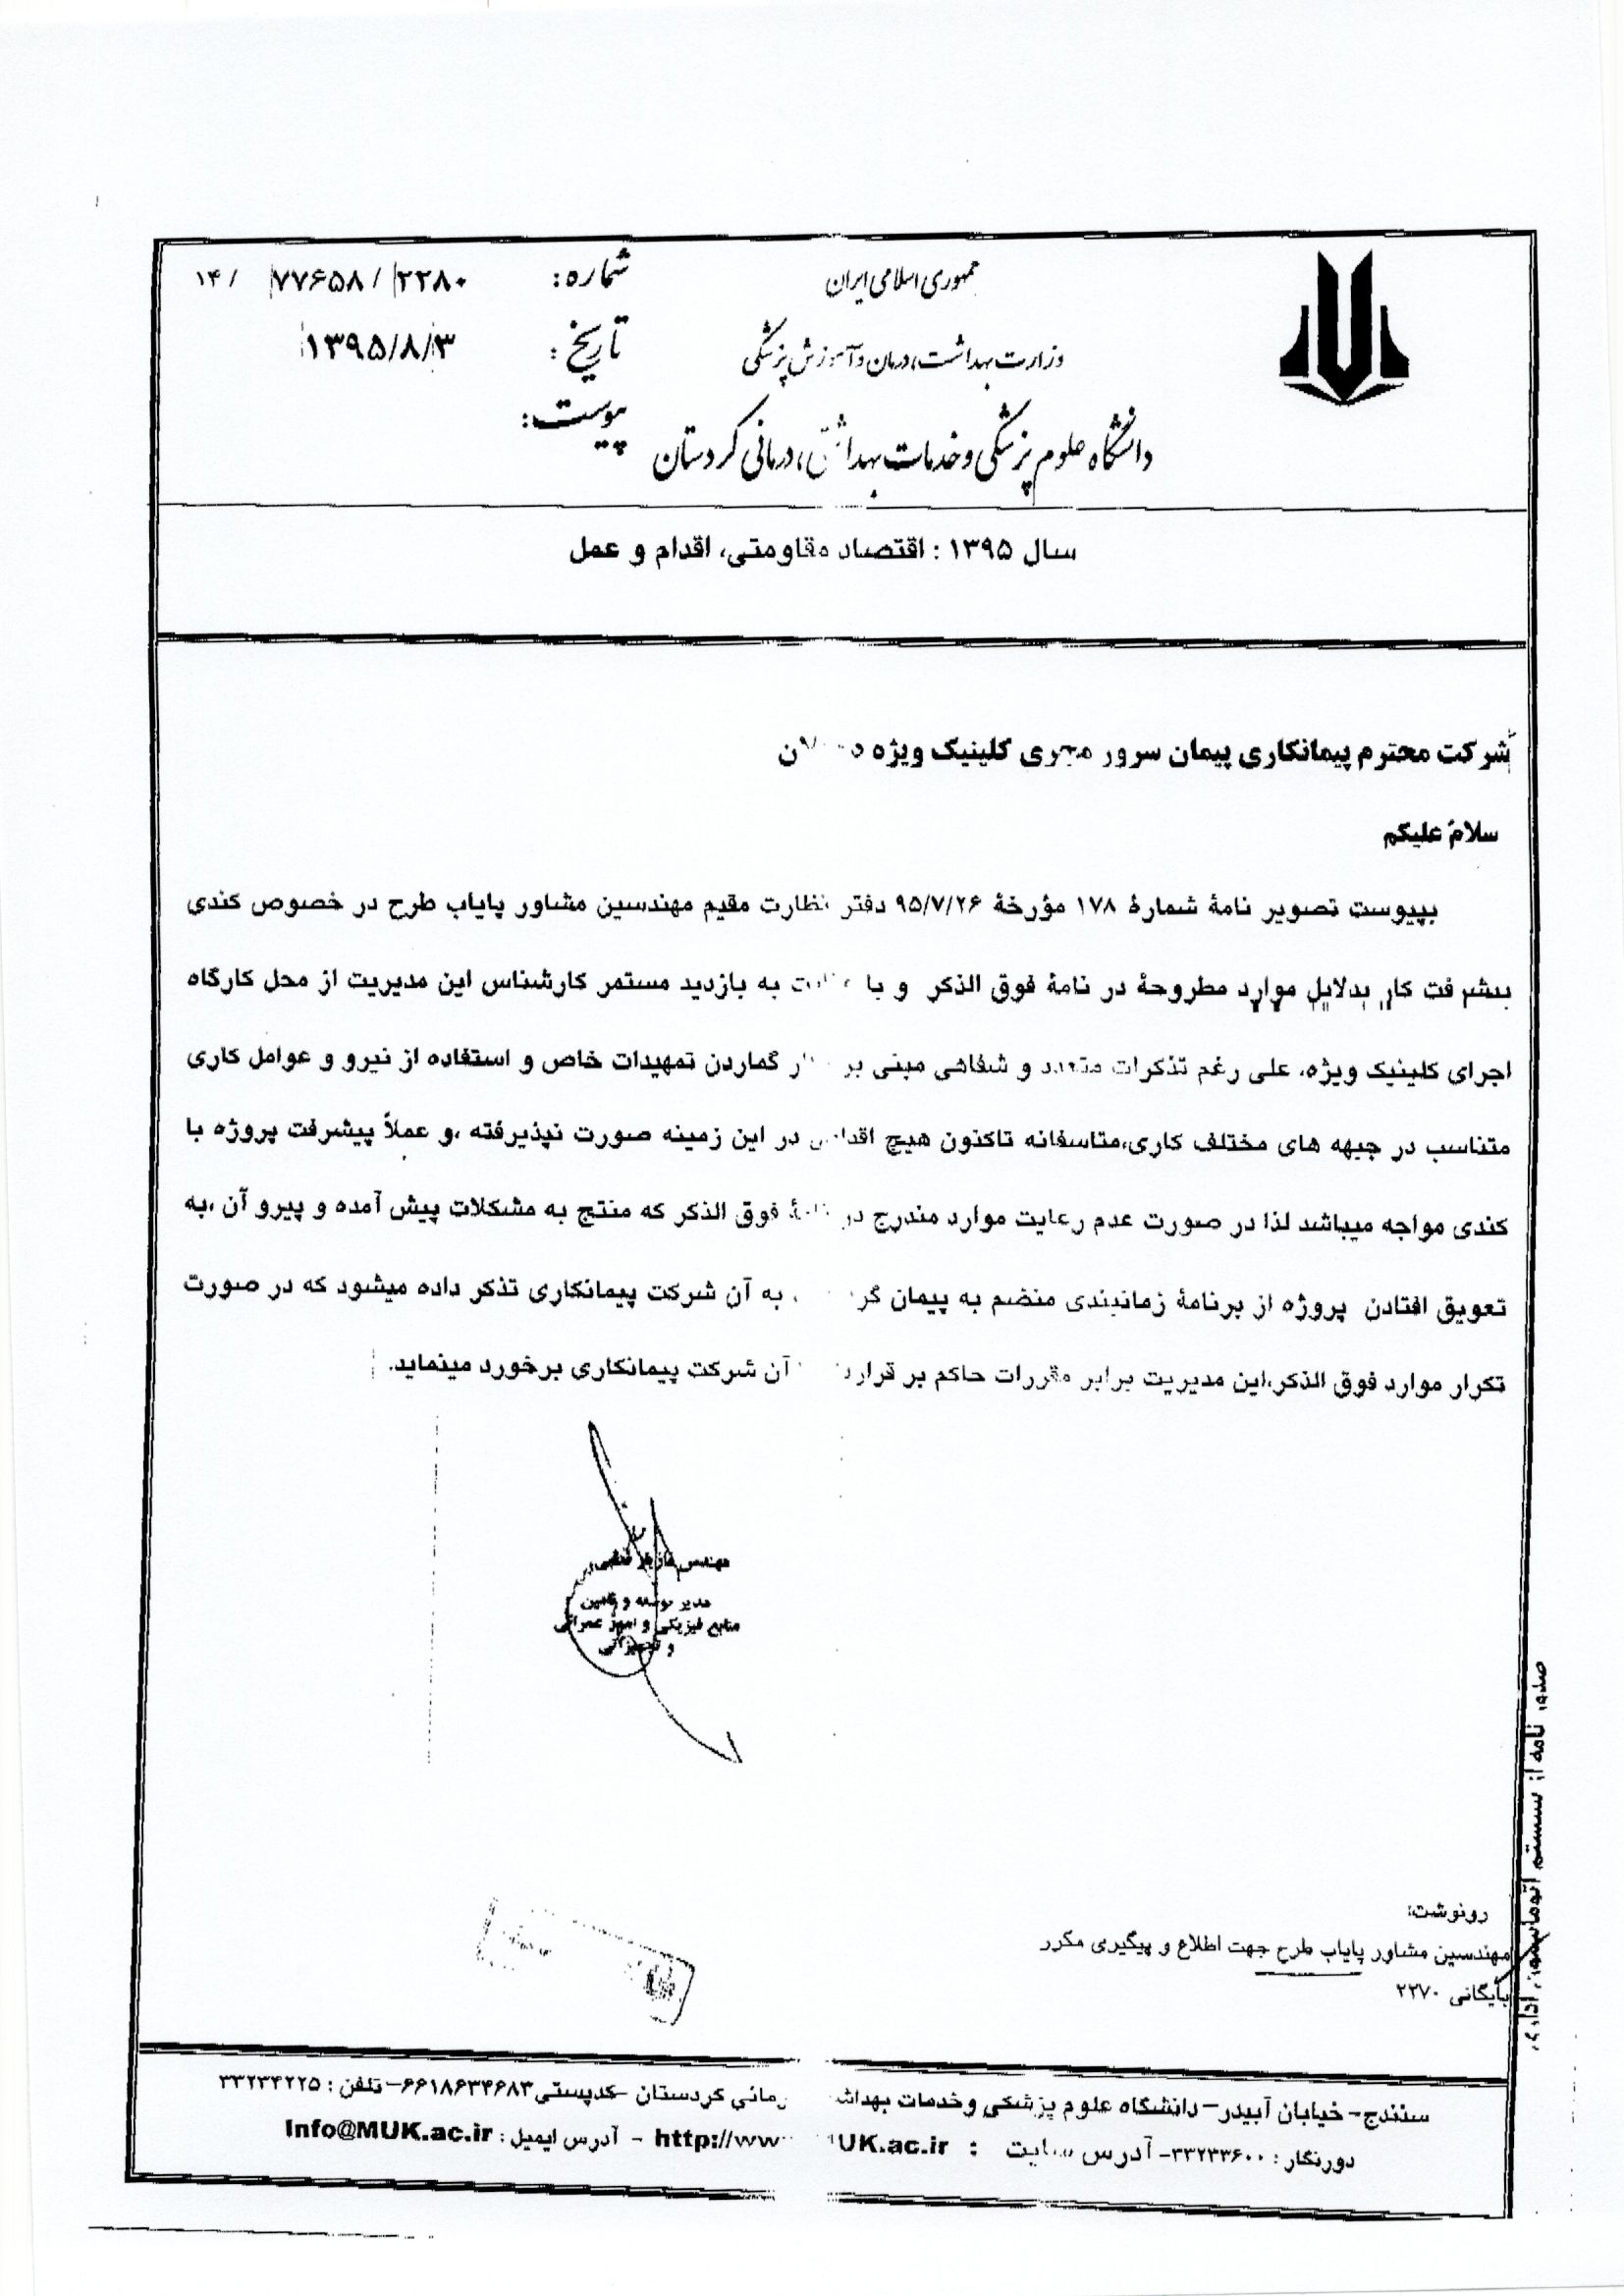 جمهوری اسلامی ایران
وزارت بهداشت، درمان و آموزش پزشکی
دانشگاه علوم پزشکی و خدمات بهداشتی، درمانی کردستان
شماره: ۱۴/ ۷۷۶۵۸/ ۲۲۸۰
تاریخ: ۱۳۹۵/۸/۳
پیوست:
سال ۱۳۹۵ : اقتصاد مقاومتی، اقدام و عمل
شرکت محترم پیمانکاری پیمان سرور مجری کلینیک ویژه
سلام علیکم
بپیوست تصویر نامۀ شمارۀ ۱۷۸ مؤرخۀ ۹۵/۷/۲۶ دفتر نظارت مقیم مهندسین مشاور پایاب طرح در خصوص کندی
پیشرفت کار بدلایل موارد مطروحۀ در نامۀ فوق الذکر و با به بازدید مستمر کارشناس این مدیریت از محل کارگاه
اجرای کلینیک ویژه، علی رغم تذکرات متعدد و شفاهی مبنی بر گماردن تمهیدات خاص و استفاده از نیرو و عوامل کاری
متناسب در جبهه های مختلف کاری،متاسفانه تاکنون هیچ اقدامی در این زمینه صورت نپذیرفته ،و عملاً پیشرفت پروژه با
کندی مواجه میباشد لذا در صورت عدم رعایت موارد مندرج در نامۀ فوق الذکر که منتج به مشکلات پیش آمده و پیرو آن ،به
تعویق افتادن پروژه از برنامۀ زمانبندی منضم به پیمان به آن شرکت پیمانکاری تذکر داده میشود که در صورت
تکرار موارد فوق الذکر،این مدیریت برابر مقررات حاکم بر آن شرکت پیمانکاری برخورد مینماید.
مهندس
مدیر توسعه و تامین
منابع فیزیکی و امور عمرانی
و تجهیزاتی
رونوشت:
مهندسین مشاور پایاب طرح جهت اطلاع و پیگیری مکرر
بایگانی ۲۲۷۰
صدور نامه از سیستم اتوماسیون اداری
سنندج- خیابان آبیدر- دانشگاه علوم پزشکی وخدمات بهداشتی درمانی کردستان -کدپستی۶۶۱۸۶۳۴۶۸۳-تلفن : ۳۳۲۳۴۲۲۵
دورنگار : ۳۳۲۳۳۶۰۰- آدرس سایت : http://www.MUK.ac.ir - آدرس ایمیل : Info@MUK.ac.ir